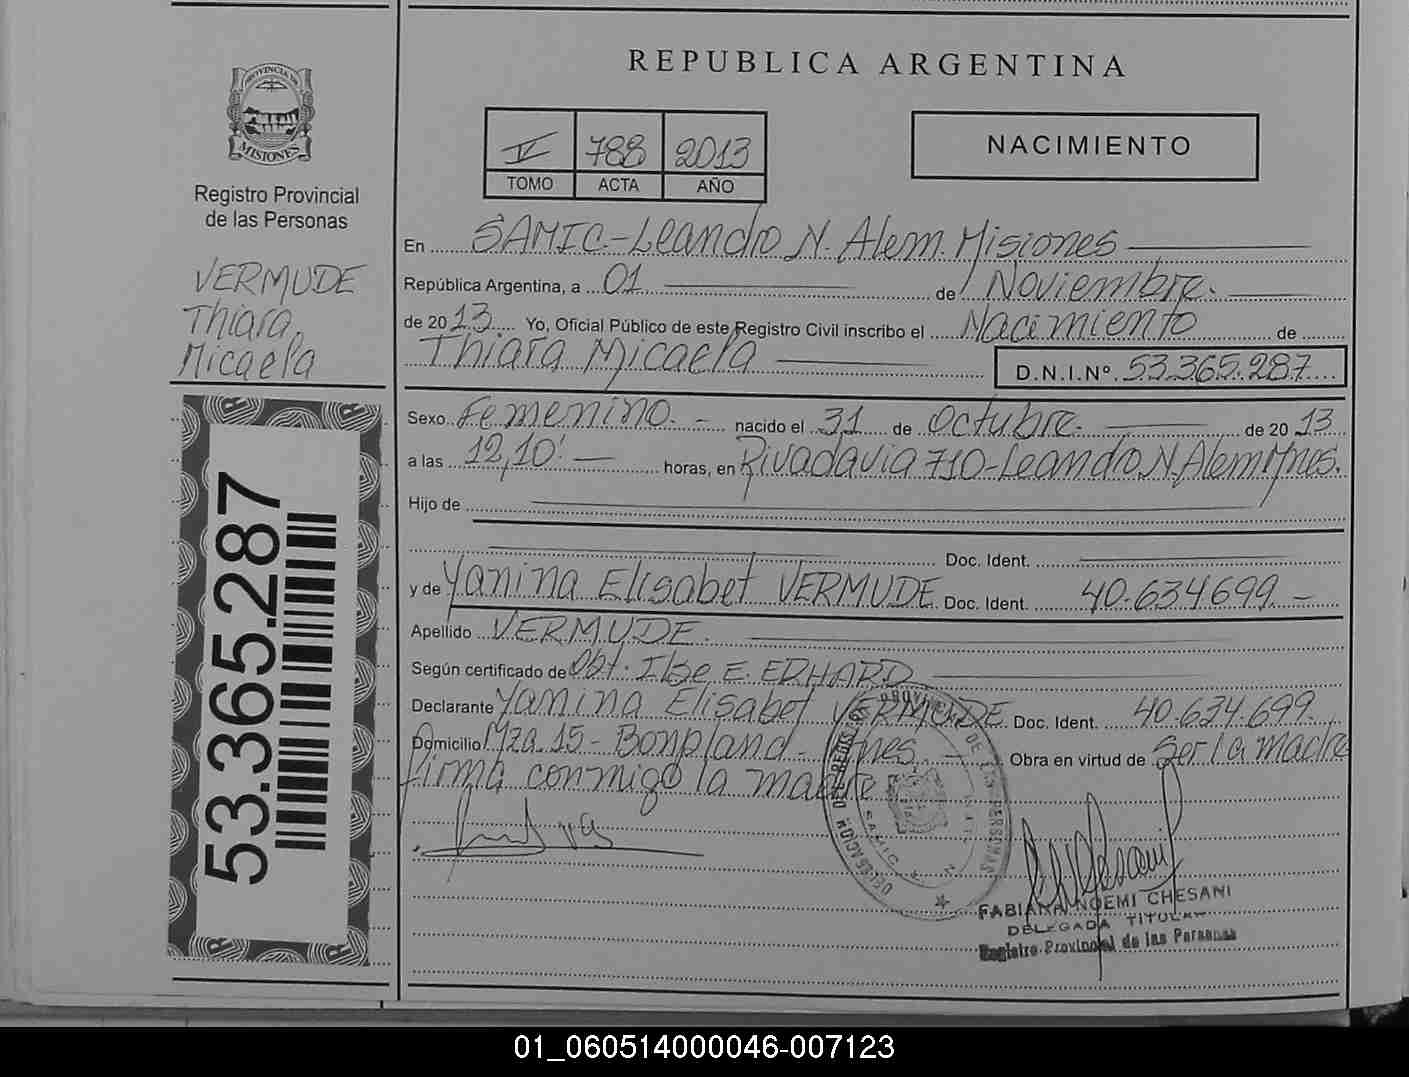 REPUBLICA ARGENTINA
PROVINCIA DE
MISIONES
Registro Provincial
de las Personas
VERMUDE
Thiara
Micaela
53.365.287
V 788 2013
TOMO ACTA AÑO
NACIMIENTO
En SAMIC-Leandro N. Alem. Misiones
República Argentina, a 01 de Noviembre.
de 2013 Yo, Oficial Público de este Registro Civil inscribo el Nacimiento de
Thiara Micaela D.N.I.Nº 53.365.287
Sexo Femenino. nacido el 31 de Octubre. de 2013
a las 12,10' horas, en Rivadavia 710-Leandro N. Alem Mnes.
Hijo de
Doc. Ident.
y de Yanina Elisabet VERMUDE Doc. Ident. 40.634699
Apellido VERMUDE.
Según certificado de Obt. Ilse E. ERHARD
Declarante Yanina Elisabet VERMUDE Doc. Ident. 40.634.699.
Domicilio Mza. 15 - Bonpland - Mnes. Obra en virtud de Ser la madre
firma conmigo la madre
DELEGACION DEL REGISTRO PROVINCIAL DE LAS PERSONAS
SAMIC
FABIANA NOEMI CHESANI
DELEGADA TITULAR
Registro Provincial de las Personas
01_060514000046-007123